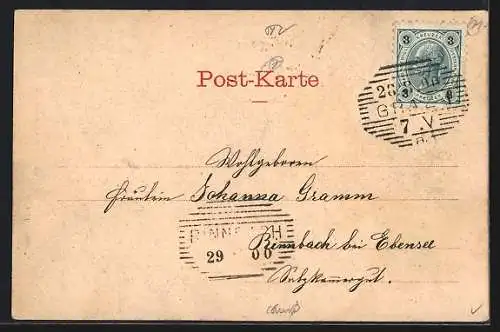 3 3
Post-Karte
28
GRAZ
7. V
Wohlgeboren
Fräulein Johanna Gramm
29 00
Rinnbach bei Ebensee
Salzkammergut.